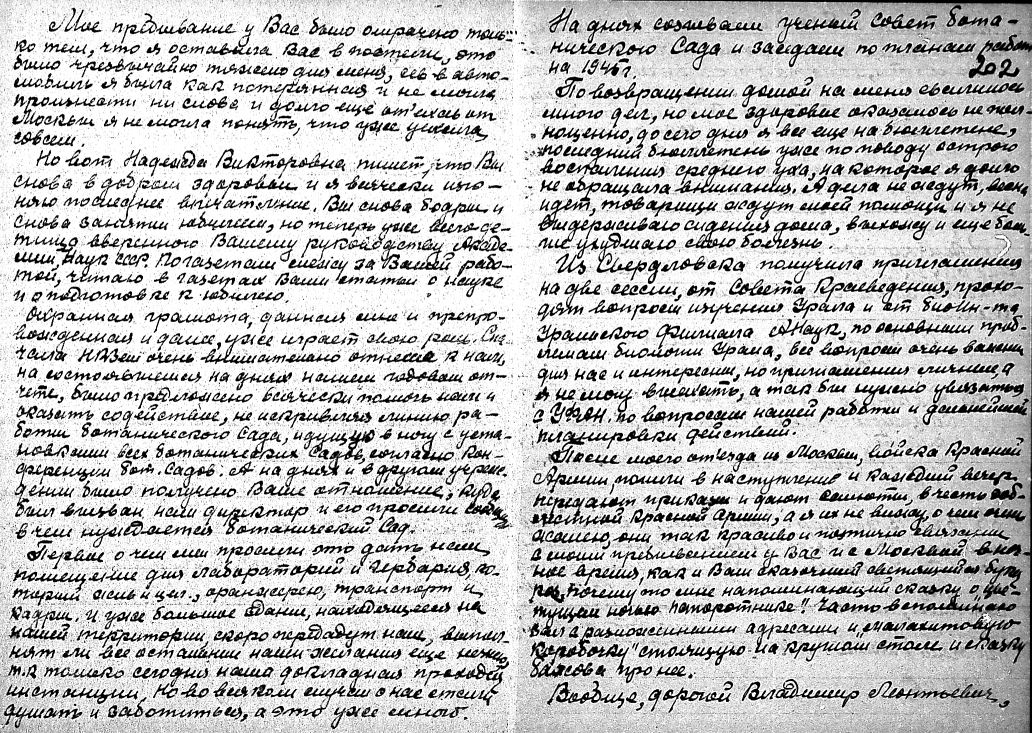 Мое пребывание у Вас было омрачено толь-
ко тем, что я оставила Вас в постели, это
было чрезвычайно тяжело для меня, сев в авто-
мобиль я была как потерянная и не могла
произнести ни слова и долго ещё от'ехав от
Москвы я не могла понять, что уже уехала
совсем.
Но вот Надежда Викторовна пишет, что Вы
снова в добром здоровьи и я всячески изго-
няю последнее впечатление. Вы снова бодры и
снова заняты юбилеем, но теперь уже всего де-
тища вверенного Вашему руководству Акаде-
мии Наук СССР. По газетам слежу за Вашей рабо-
той, читаю в газетах Ваши статьи о науке
и о подготовке к юбилею.
Охранная грамота, данная мне и препро-
вожденная и даме, уже играет свою роль. Сна-
чала НКЗем очень внимательно отнесся к нам,
на состоявшемся на днях нашем годовом от-
чете, было предложено всячески помочь нам и
оказать содействие, не искривляя линию ра-
боты Ботанического Сада, идущую в ногу с уста-
новками всех ботанических Садов, согласно кон-
ференции бот. Садов. А на днях и в другом учреж-
дении было получено Ваше отношение, куда
был вызван наш директор и его просили
в чем нуждается Ботанический Сад.
Первое о чем мы просили это дать нам
помещение для лабораторий и гербария, ко-
торый оранжерею, транспорт и
кадры. И уже большое здание, находящееся на
нашей территории, скоро передадут нам, выпол-
нят ли все остальные наши желания еще
т.к только сегодня наша докладная проходит
инстанции. Но во всяком случае о нас стали
думать и заботиться, а это уже много.
На днях созываем ученый совет Бота-
нического Сада и заседаем по планам работ
на 1945 г.
202
По возвращении домой на меня свалилось
много дел, но мое здоровье оказалось не пол-
ноценно, до сего дня я все еще на бюллетене,
последний бюллетень уже по поводу острого
воспаления среднего уха, на которое я долго
не обращала внимания. А дела не ждут, весна
идет, товарищи ждут моей помощи и я не
выдерживаю сидения дома, выхожу и еще боль-
ше ухудшаю свою болезнь.
Из Свердловска получила приглашения
на две сессии, от Совета Краеведения, прохо-
дят вопросы изучения Урала и от биоин-та
Уральского Филиала А.Наук, по основным проб-
лемам биологии Урала, все вопросы очень важны
для нас и интересны, но приглашения личные, а
я не могу выехать, а так бы нужно увязаться
с УФАН. по вопросам нашей работы и дальнейшей
планировки действий.
После моего от'езда из Москвы, войска Красной
Армии, пошли в наступление и каждый вечер
передают приказы и дают салюты, в честь доб-
лестной Красной Армии, а я их не вижу, о чем очень
жалею, они так красивы и поэтично связаны
с моим пребыванием у Вас и с Москвой в
время, как и Ваш сказочный светящийся
почему то мне напоминающий сказку о „цве-
тущем ночью папоротнике". Часто вспоминаю
зал с разложенными адресами и „малахитовую
коробочку" стоящую на круглом столе и сказку
Бажова про нее.
Вообще, дорогой Владимир Леонтьевич,